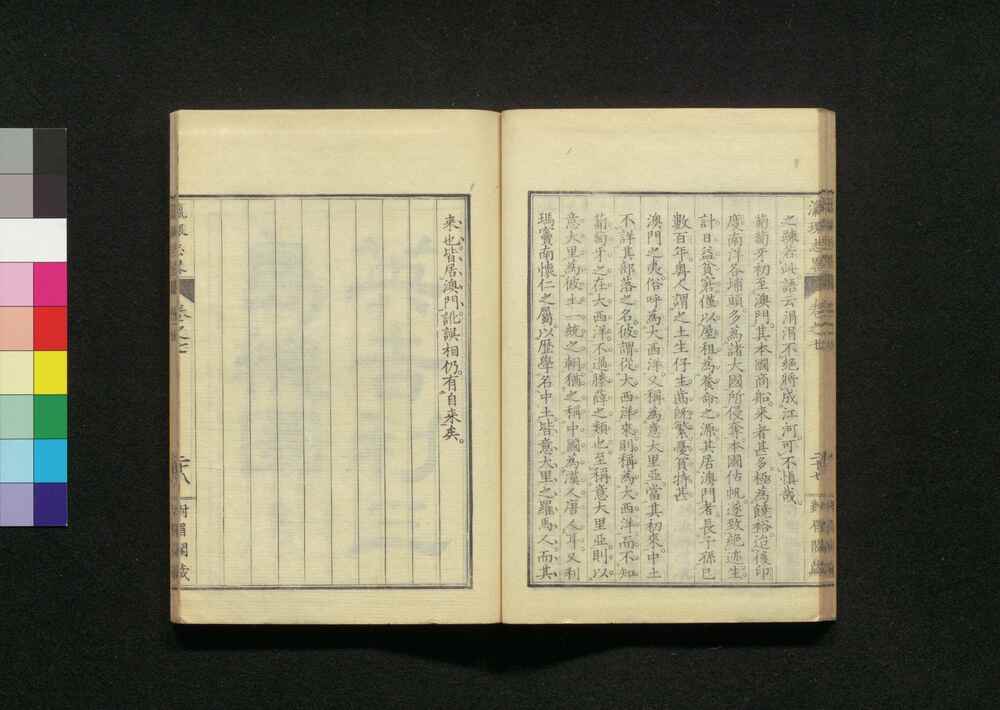 之疎召此語云涓涓不絕將成江河可不慎哉。
葡萄牙初至澳門其本國商船來者甚多極為饒裕迨後印
度南洋各埔頭多為諸大國所侵奪本國估帆遂致絕迹生
計日益貧窘僅以屋租為養命之源其居澳門者長子孫已
數百年粵人謂之土生仔生齒繁憂貧特甚
澳門之夷俗呼為大西洋又稱為意大里亞當其初來中土
不詳其部落之名彼謂從大西洋來則稱為大西洋而不知
葡萄牙之在大西洋不過滕薛之類也至稱意大里亞則以
意大里為彼土一統之朝猶之稱中國為漢人唐人耳又利
瑪竇南懷仁之屬以歷學名中土皆意大里之羅馬人而其
來也皆居澳門訛誤相仍有自來矣。